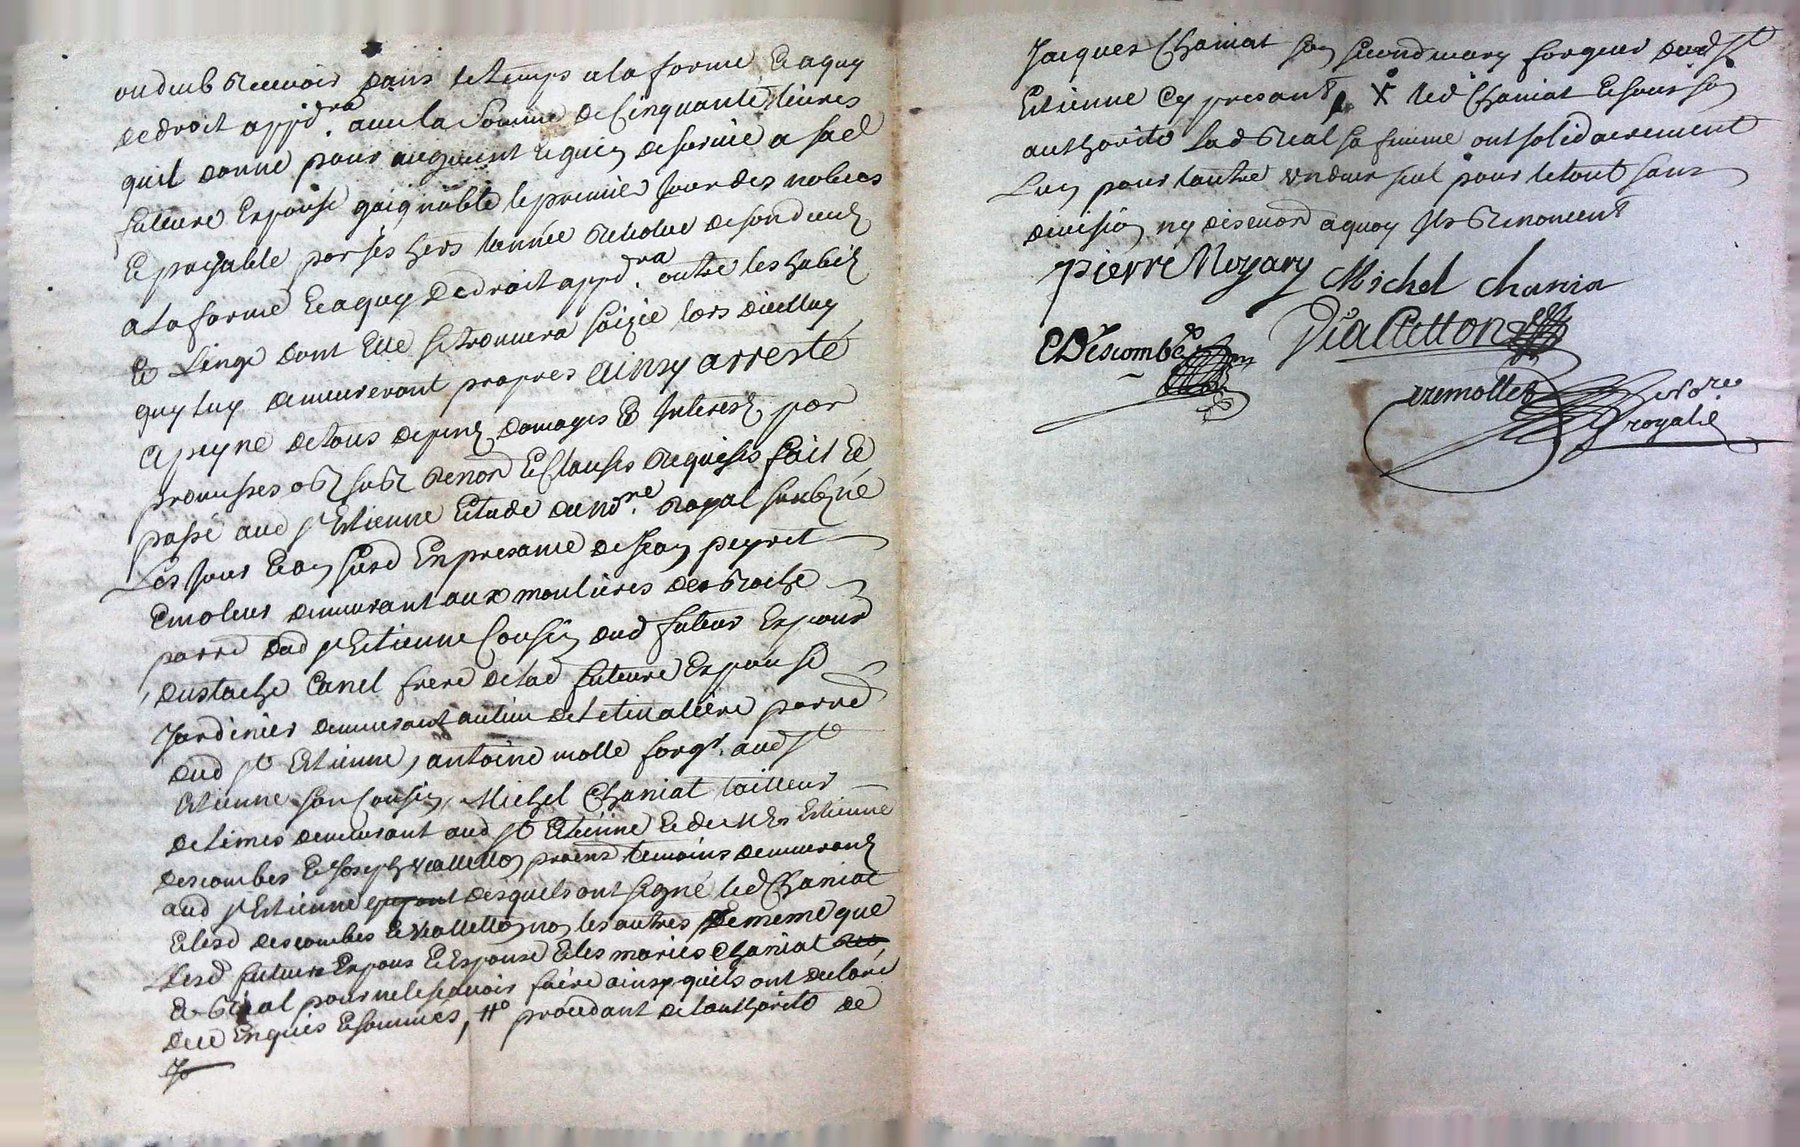 ou deub Recevoir dans le temps a la forme Et a quy
de droit appdra. avec la Somme de Cinquante livres
quil donne pour augment Et guen de survie a sad
future Espouse gaignable le premier Jour des nobces
Et payable par ses hers lannée Revolue de son deces
a la forme Et a quy De droit appdra. outre les habis
Et Linge dont Elle se trouvera saizie lors dicelluy
quy luy demeureront propres ainsy arresté
a peyne de tous depens domages Et Interest par
promisses obt submt Renon Et Clauses Requises fait Et
passé aud St Estienne Etude du nore. Royal soubné
Les Jour Et an susd En presance de Jean peyret
Emoleur demeurant aux moulieres de Roche
parre dud St Etienne Cousin dud futeur Espoux
Eustache Canel frere de lad future Espouse
Jardinier demeurant au lieu de letivaliere parre
dud St Etienne, antoine molle forgr. aud St
Etienne son Cousin, Michel Chaniat tailleur
de limes demeurant aud St Etienne Et de Me Estienne
descombes Et Joseph vialleton praens temoins demeurans
aud St Estienne desquels ont signé led Chaniat
Et lesd descombes Et vialleton non les autres de meme que
Lesd futeurs Espoux Et Espouse Et les mariés Chaniat
Et Real pour ne le scavoir faire ainsy quils ont declaré
de ce Enquis Et sommés, # procedant de lauthorité de
Jacques Chaniat son second mary forgeur dud St
Etienne Cy presant, X led Chaniat Et sous son
authorité Lad Real sa femme ont solidairement
Lun pour lautre un deux seul pour le tout sans
division ny discuord a quoy Ils Renoncent
pierre Noyary Michel chania
EDescombes Vialletton
tremollet nore.
royale